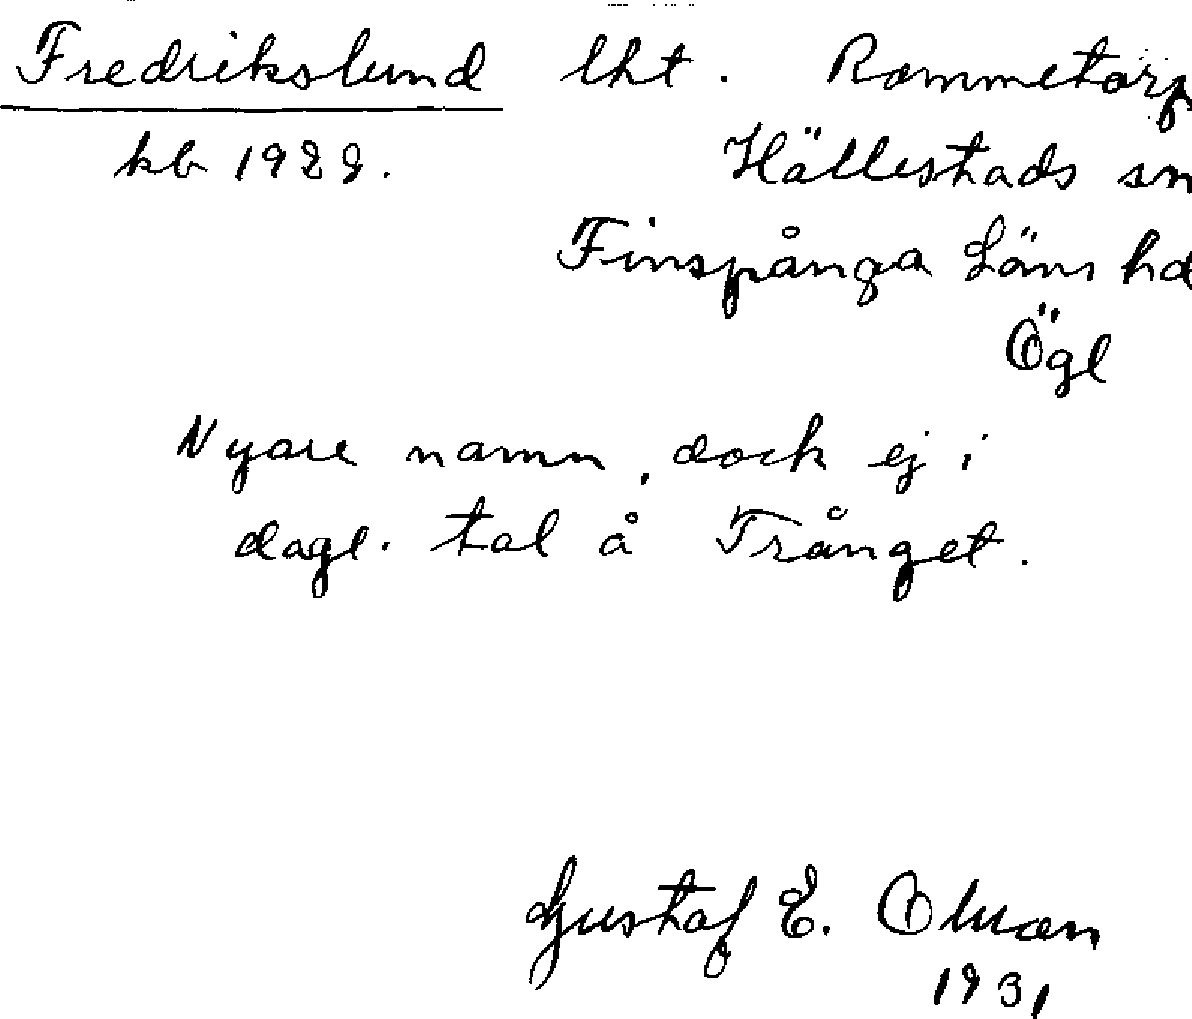 Fredrikslund lht. Rammetorp
kb 1929. Hällestads sn
Finspånga Läns hd
Ögl
Nyare namn, dock ej i
dagl. tal å Trånget.
Gustaf E. Olman
1931